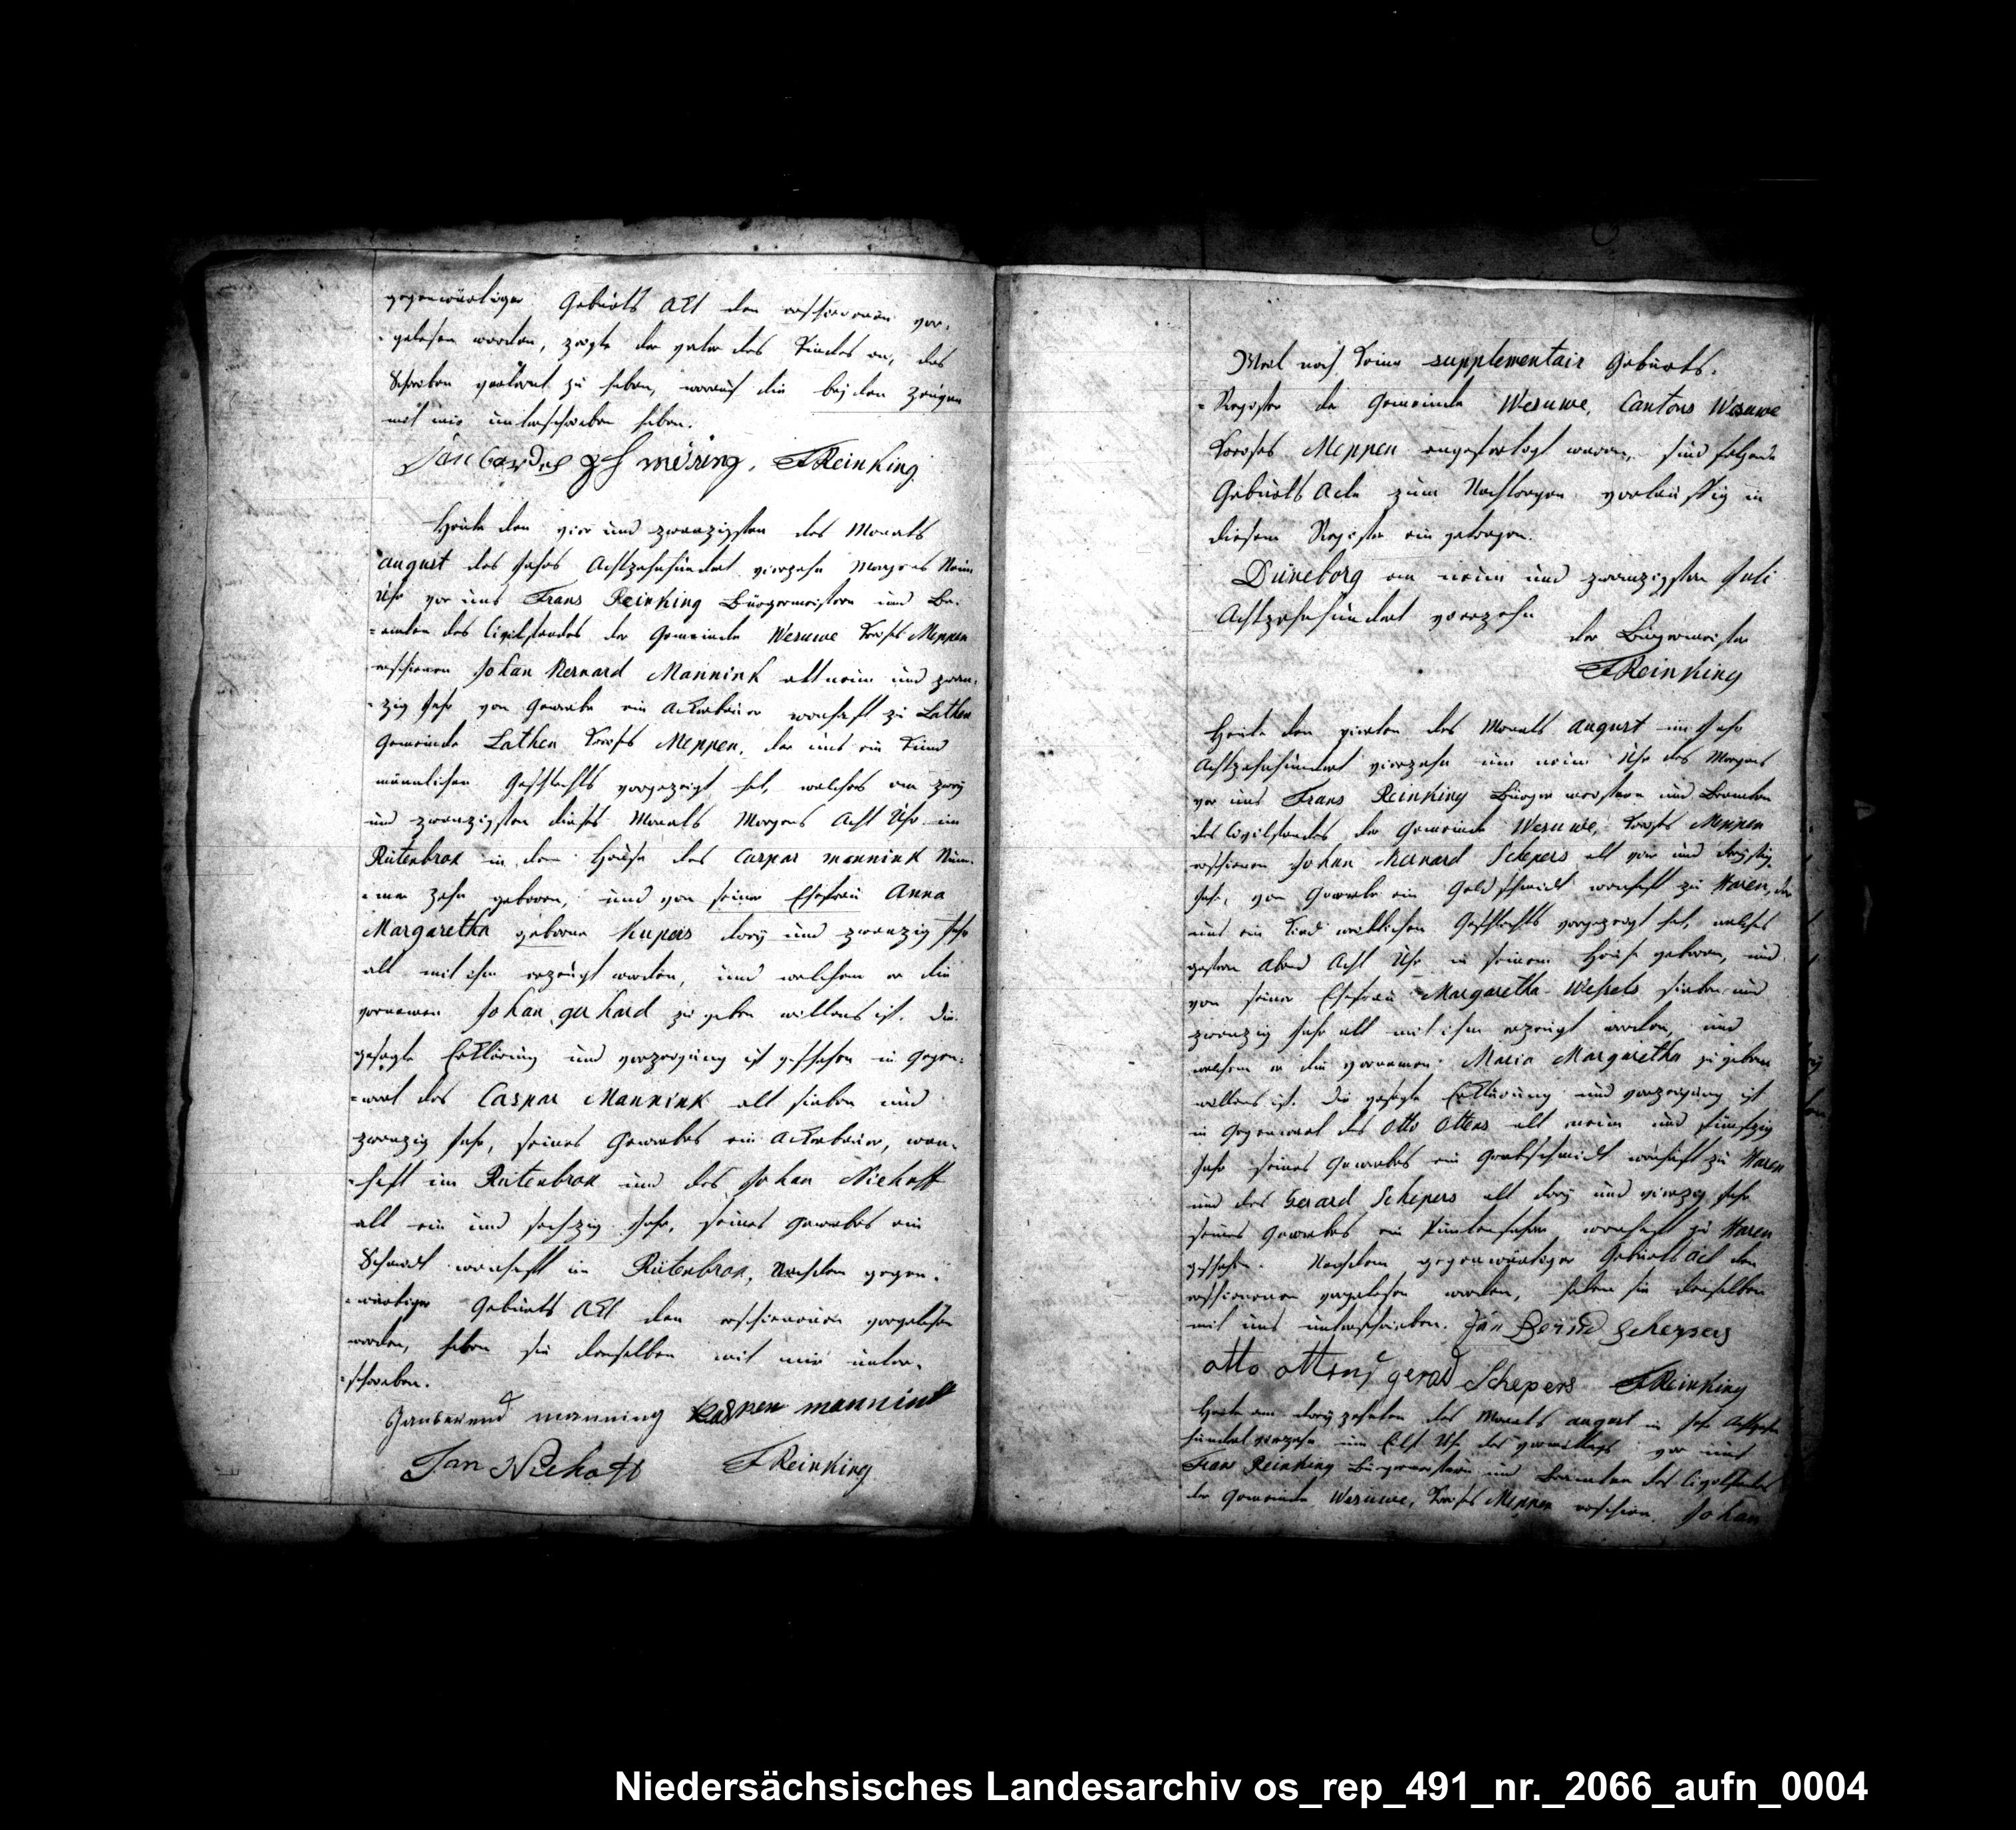 gegenwärtiger Geburts Akt den erschienenen vor-
-gelesen worden, zeigte der vater des Kindes an, das
Schreiben verlernt zu haben, worauf die beiden Zeugen
mit mir unterschrieben haben.
FReinking
Heute den vier und zwanzigsten des Monats
august des Jahrs Achtzehnhundert vierzehn Morgens Neun
Uhr vor uns Frans Reinking Bürgermeistern und Be-
=amten des Civilstandes der Gemeinde Wesuwe Kreises Meppen
erschienen Johan Bernard Mannink alt neun und zwan-
-zig Jahr von Gewerbe ein Ackerbauer wonhaft zu Lathen
Gemeinde Lathen Kreises Meppen, der uns ein Kind
männlichen Geschlechts vorgezeigt hat, welches am zwey
und zwanzigsten dieses Monats Morgens Acht Uhr im
Rütenbrok in dem Hause des Caspar mannink Num-
-mer zehn geboren, und von seiner Ehefrau Anna
Margaretha geborne Kupers drey und zwanzig Jahr
alt mit ihm erzeugt worden, und welchem er die
vornamen Johan gerhard zu geben willens ist. Die
gesagte Erklärung und vorzeigung ist geschehen in Gegen-
=wart des Caspar Mannink alt sieben und
zwanzig Jahr, seines Gewerbes ein Ackerbauer, won-
-haft im Rütenbrok und des Johan Niehoff
alt ein und sechzig Jahr, seines Gewerbes ein
Schmidt wonhaft im Rütenbrok, Nachdem gegen-
-wärtiger Geburts Akt den erschienenen vorgelesen
worden, haben sie denselben mit mir unter-
-schrieben.
Janberend manning Casper mannink
Jan Niehoff FReinking
Weil noch keine supplementair Geburts-
-Register der Gemeinde Wesuwe, Cantons Wesuwe
Kreises Meppen angefertigt waren, sind folgende
Geburts Acte zum Nachtragen vorläufig in
diesem Register ein getragen.
Düneborg am neun und zwanzigsten Juli
Achtzehnhundert vierzehn
der Bürgermeister
FReinking
Heute den vierten des Monats august im Jahr
Achtzehnhundert vierzehn um neun Uhr des Morgens
vor uns Frans Reinking Bürgermeistern und Beamten
des Civilstandes der Gemeinde Wesuwe, Kreises Meppen
erschienen Johan Bernard Schepers alt vier und dreyßig
Jahr, von Gewerbe ein Goldschmidt wonhaft zu Haren, der
uns ein Kind weiblichen Geschlechts vorgezeigt hat, welches
gestern Abend Acht Uhr in seinem Hause geboren, und
von seiner Ehefrau Margaretha Weßels sieben und
zwanzig Jahr alt mit ihm erzeugt worden, und
welchem er die vornamen Maria Margaretha zu geben
willens ist. Die gesagte Erklärung und vorzeigung ist
in Gegenwart des Otto Ottens alt neun und fünfzig
Jahr seines Gewerbes ein wonhaft zu Haren
und des Gerard Schepers alt drey und vierzig Jahr
seines Gewerbes ein wonhaft zu Haren
geschehen. Nachdem gegenwärtiger Geburts Act den
erschienenen vorgelesen worden, haben sie denselben
mit uns unterschrieben. Jan Bernd Schepers
otto ottens gerad Schepers FReinking
Heute am dreyzehnten des Monats august im Jahr Achtzehn
hundert vierzehn um Eilf Uhr des vormittags vor uns
Frans Reinking Bürgermeistern und Beamten des Civilstandes
der Gemeinde Wesuwe, Kreises Meppen erschien Johan
Niedersächsisches Landesarchiv os_rep_491_nr._2066_aufn_0004